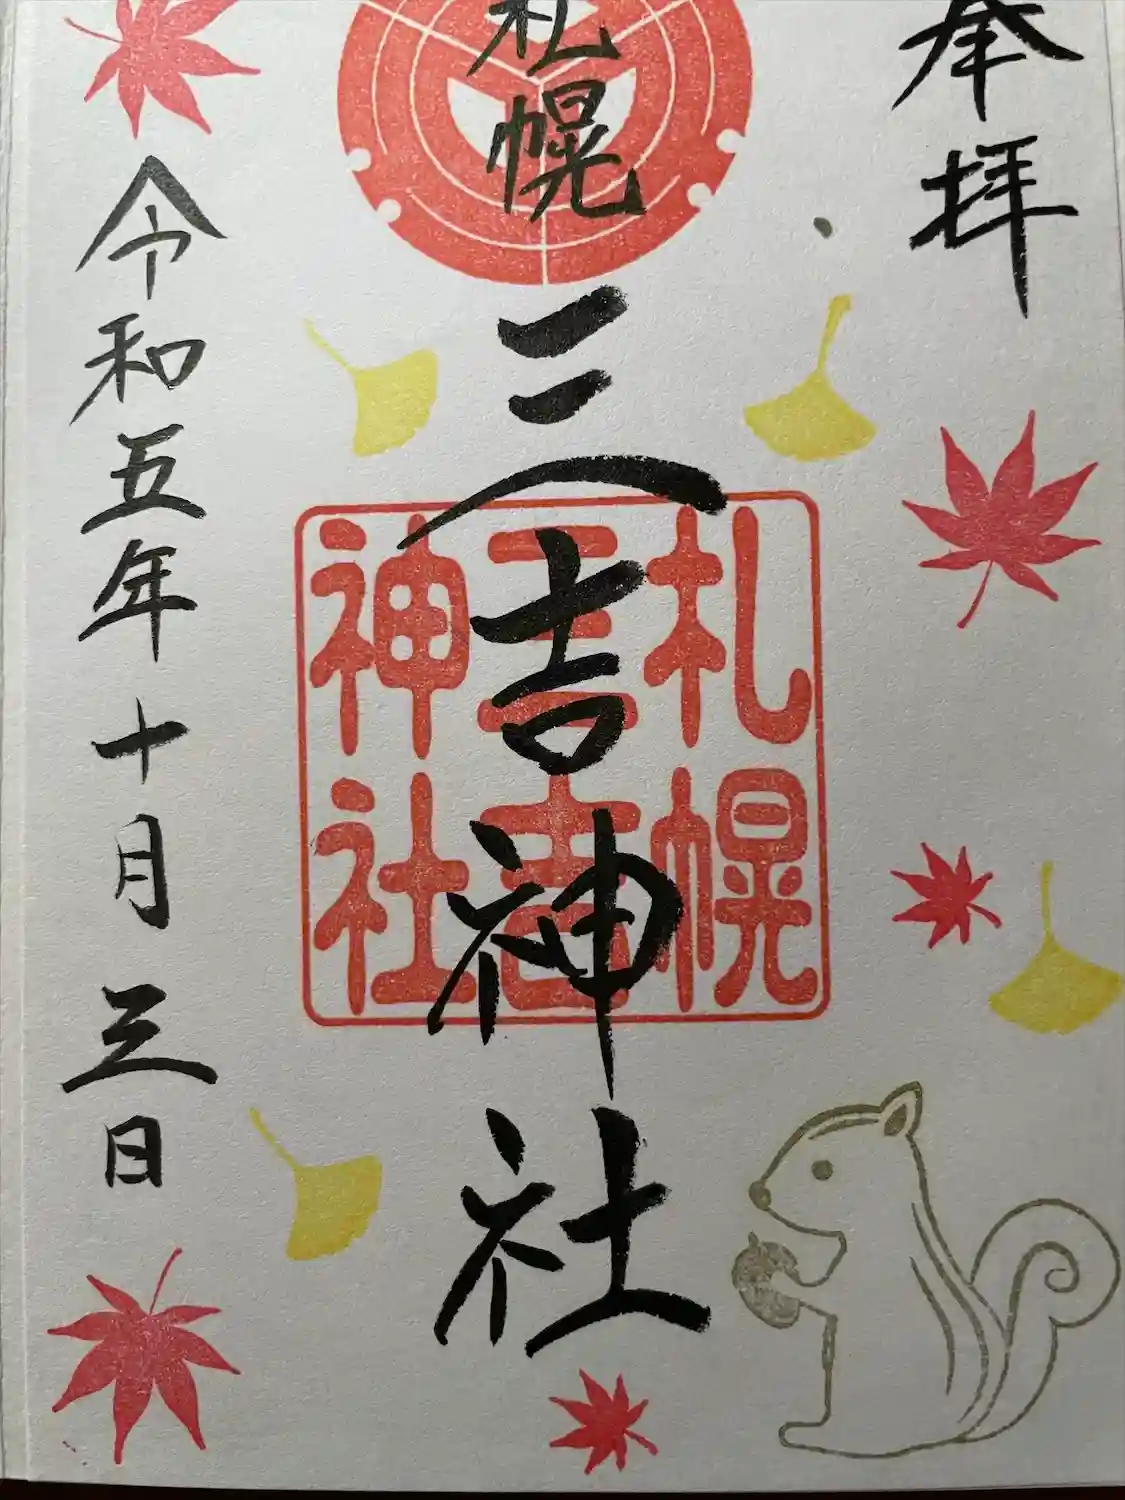 奉拝
札幌
三吉神社
札幌
三吉
神社
令和五年十月三日